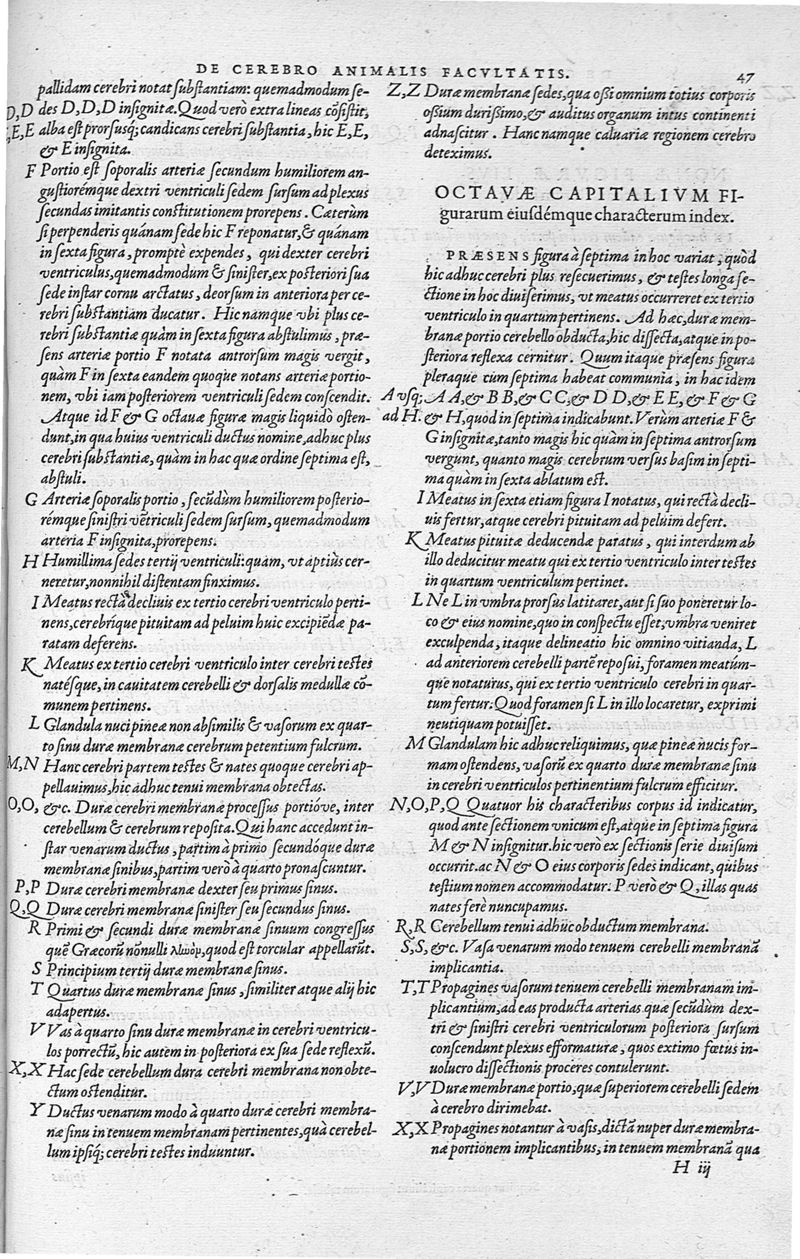 DE CEREBRO ANIMALIS FACVLTATIS. 47
pallidam cerebri notat ſubſtantiam: quemadmodum ſe-
D,D des D,D,D inſignitæ. Quod verò extra lineas cōſiſtit,
E,E alba eſt prorſusq́; candicans cerebri ſubſtantia, hic E,E,
& E inſignita.
F Portio eſt ſoporalis arteriæ ſecundum humiliorem an-
guſtiorémque dextri ventriculi ſedem ſurſum ad plexus
ſecundas imitantis conſtitutionem prorepens. Cæterùm
ſi perpenderis quánam ſede hic F reponatur, & quánam
in ſexta figura, promptè expendes, qui dexter cerebri
ventriculus, quemadmodum & ſiniſter, ex poſteriori ſua
ſede inſtar cornu arctatus, deorſum in anteriora per ce-
rebri ſubſtantiam ducatur. Hic namque vbi plus ce-
rebri ſubſtantiæ quàm in ſexta figura abſtulimus, præ-
ſens arteriæ portio F notata antrorſum magis vergit,
quàm F in ſexta eandem quoque notans arteriæ portio-
nem, vbi iam poſteriorem ventriculi ſedem conſcendit.
Atque id F & G octauæ figuræ magis liquidò oſten-
dunt, in qua huius ventriculi ductus nomine, adhuc plus
cerebri ſubſtantiæ, quàm in hac quæ ordine ſeptima eſt,
abſtuli.
G Arteriæ ſoporalis portio, ſecūdùm humiliorem poſterio-
rémque ſiniſtri vētriculi ſedem ſurſum, quemadmodum
arteria F inſignita, prorepens.
H Humillima ſedes tertij ventriculi: quam, vt aptiùs cer-
neretur, nonnihil diſtentam finximus.
I Meatus rectà decliuis ex tertio cerebri ventriculo perti-
nens, cerebrique pituitam ad peluim huic excipiēdæ pa-
ratam deferens.
K Meatus ex tertio cerebri ventriculo inter cerebri teſtes
natéſque, in cauitatem cerebelli & dorſalis medullæ cō-
munem pertinens.
L Glandula nuci pineæ non abſimilis & vaſorum ex quar-
to ſinu duræ membranæ cerebrum petentium fulcrum.
M,N Hanc cerebri partem teſtes & nates quoque cerebri ap-
pellauimus, hic adhuc tenui membrana obtectas.
O,O, &c. Duræ cerebri membranæ proceſſus portióve, inter
cerebellum & cerebrum repoſita. Qui hanc accedunt in-
ſtar venarum ductus, partim à primo ſecundóque duræ
membranæ ſinibus, partim verò à quarto pronaſcuntur.
P,P Duræ cerebri membranæ dexter ſeu primus ſinus.
Q,Q Duræ cerebri membranæ ſiniſter ſeu ſecundus ſinus.
R Primi & ſecundi duræ membranæ ſinuum congreſſus
quē Græcorū nōnulli ληνόν, quod eſt torcular appellarūt.
S Principium tertij duræ membranæ ſinus.
T Quartus duræ membranæ ſinus, ſimiliter atque alij hic
adapertus.
V Vas à quarto ſinu duræ membranæ in cerebri ventricu-
los porrectū, hic autem in poſteriora ex ſua ſede reflexū.
X,X Hac ſede cerebellum dura cerebri membrana non obte-
ctum oſtenditur.
Y Ductus venarum modo à quarto duræ cerebri membra-
næ ſinu in tenuem membranam pertinentes, quà cerebel-
lum ipſiq́; cerebri teſtes induuntur.
Z,Z Duræ membranæ ſedes, qua oſſi omnium totius corporis
oſſium duriſſimo, & auditus organum intus continenti
adnaſcitur. Hanc namque caluariæ regionem cerebro
deteximus.
OCTAVÆ CAPITALIVM FI-
gurarum eiuſdémque characterum index.
PRÆSENS figura à ſeptima in hoc variat, quòd
hic adhuc cerebri plus reſecuerimus, & teſtes longa ſe-
ctione in hoc diuiſerimus, vt meatus occurreret ex tertio
ventriculo in quartum pertinens. Ad hæc, duræ mem-
branæ portio cerebello obducta, hic diſſecta, atque in po-
ſteriora reflexa cernitur. Quum itaque præſens figura
pleraque cum ſeptima habeat communia, in hac idem
A vſq; A A, & B B, & C C, & D D, & E E, & F & G
ad H. & H, quod in ſeptima indicabunt. Verùm arteriæ F &
G inſignitæ, tanto magis hic quàm in ſeptima antrorſum
vergunt, quanto magis cerebrum verſus baſim in ſepti-
ma quàm in ſexta ablatum eſt.
I Meatus in ſexta etiam figura I notatus, qui rectà decli-
uis fertur, atque cerebri pituitam ad peluim defert.
K Meatus pituitæ deducendæ paratus, qui interdum ab
illo deducitur meatu qui ex tertio ventriculo inter teſtes
in quartum ventriculum pertinet.
L Ne L in vmbra prorſus latitaret, aut ſi ſuo poneretur lo-
co & eius nomine, quo in conſpectu eſſet, vmbra veniret
exculpenda, itaque delineatio hic omnino vitianda, L
ad anteriorem cerebelli partē repoſui, foramen meatum-
que notaturus, qui ex tertio ventriculo cerebri in quar-
tum fertur. Quod foramen ſi L in illo locaretur, exprimi
neutiquam potuiſſet.
M Glandulam hic adhuc reliquimus, quæ pineæ nucis for-
mam oſtendens, vaſorū ex quarto duræ membranæ ſinu
in cerebri ventriculos pertinentium fulcrum efficitur.
N,O,P,Q Quatuor his characteribus corpus id indicatur,
quod ante ſectionem vnicum eſt, atque in ſeptima figura
M & N inſignitur. hic verò ex ſectionis ſerie diuiſum
occurrit. ac N & O eius corporis ſedes indicant, quibus
teſtium nomen accommodatur: P verò & Q, illas quas
nates ferè nuncupamus.
R,R Cerebellum tenui adhuc obductum membrana.
S,S, &c. Vaſa venarum modo tenuem cerebelli membranā
implicantia.
T,T Propagines vaſorum tenuem cerebelli membranam im-
plicantium, ad eas producta arterias quæ ſecūdùm dex-
tri & ſiniſtri cerebri ventriculorum poſteriora ſurſum
conſcendunt plexus efformaturæ, quos extimo fœtus in-
uolucro diſſectionis proceres contulerunt.
V,V Duræ membranæ portio, quæ ſuperiorem cerebelli ſedem
à cerebro dirimebat.
X,X Propagines notantur à vaſis, dictā nuper duræ membra-
næ portionem implicantibus, in tenuem membranā qua
H iij